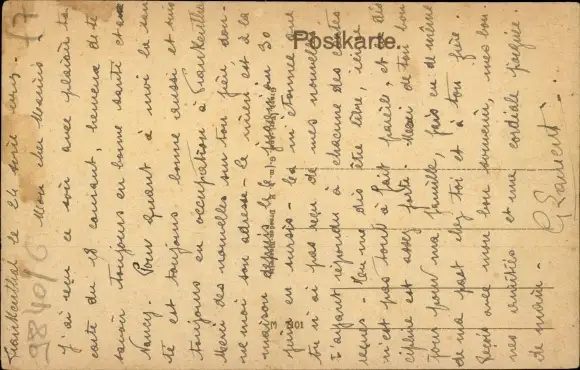 Postkarte.
Frankenthal le 24 soir
Mon cher Maurice
J'ai reçu ce soir avec plaisir ta
carte du 18 courant, heureux de te
savoir toujours en bonne santé et à
Nancy. Pour quant à moi la san
té est toujours bonne aussi et suis
toujours en occupation à Frankenthal
Merci des nouvelles sur ton père don-
ne moi son adresse - le mien est à la
maison depuis le jusqu'au 30
juin en sursis - tu m'étonnes que
tu n'ai pas reçu de mes nouvelles
t'ayant répondu à chacune des cartes
reçues. Tu me dis être libre, ici
n'est pas tout à fait pareils, et dis
cipline est assez forte. Merci de ton bon
jour pour ma famille, fais en de même
de ma part chez toi et à ton frère.
Reçois avec mon bon souvenir, mes bon
nes amitiés et une cordiale poignée
de main.
G Laurent
98401C